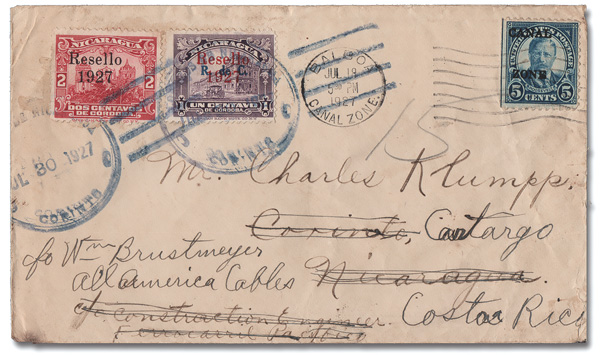 NICARAGUA
Resello
1927
2 2
DOS CENTAVOS
DE CORDOBA
NICARAGUA
Resello
1927
R. de C.
1 1
UN CENTAVO
DE CORDOBA
BALBOA
JUL 19
5 PM
1927
CANAL ZONE
CANAL
ZONE
5 CENTS 5
30 1927
CORINTO
CORINTO
Mr. Charles Klumpp.
Corinto, Cartargo
c/o Wm Brustmeyer
All America Cables Nicaragua
c/o Construction Engineer. Costa Rica
Ferrocarril Pacifico